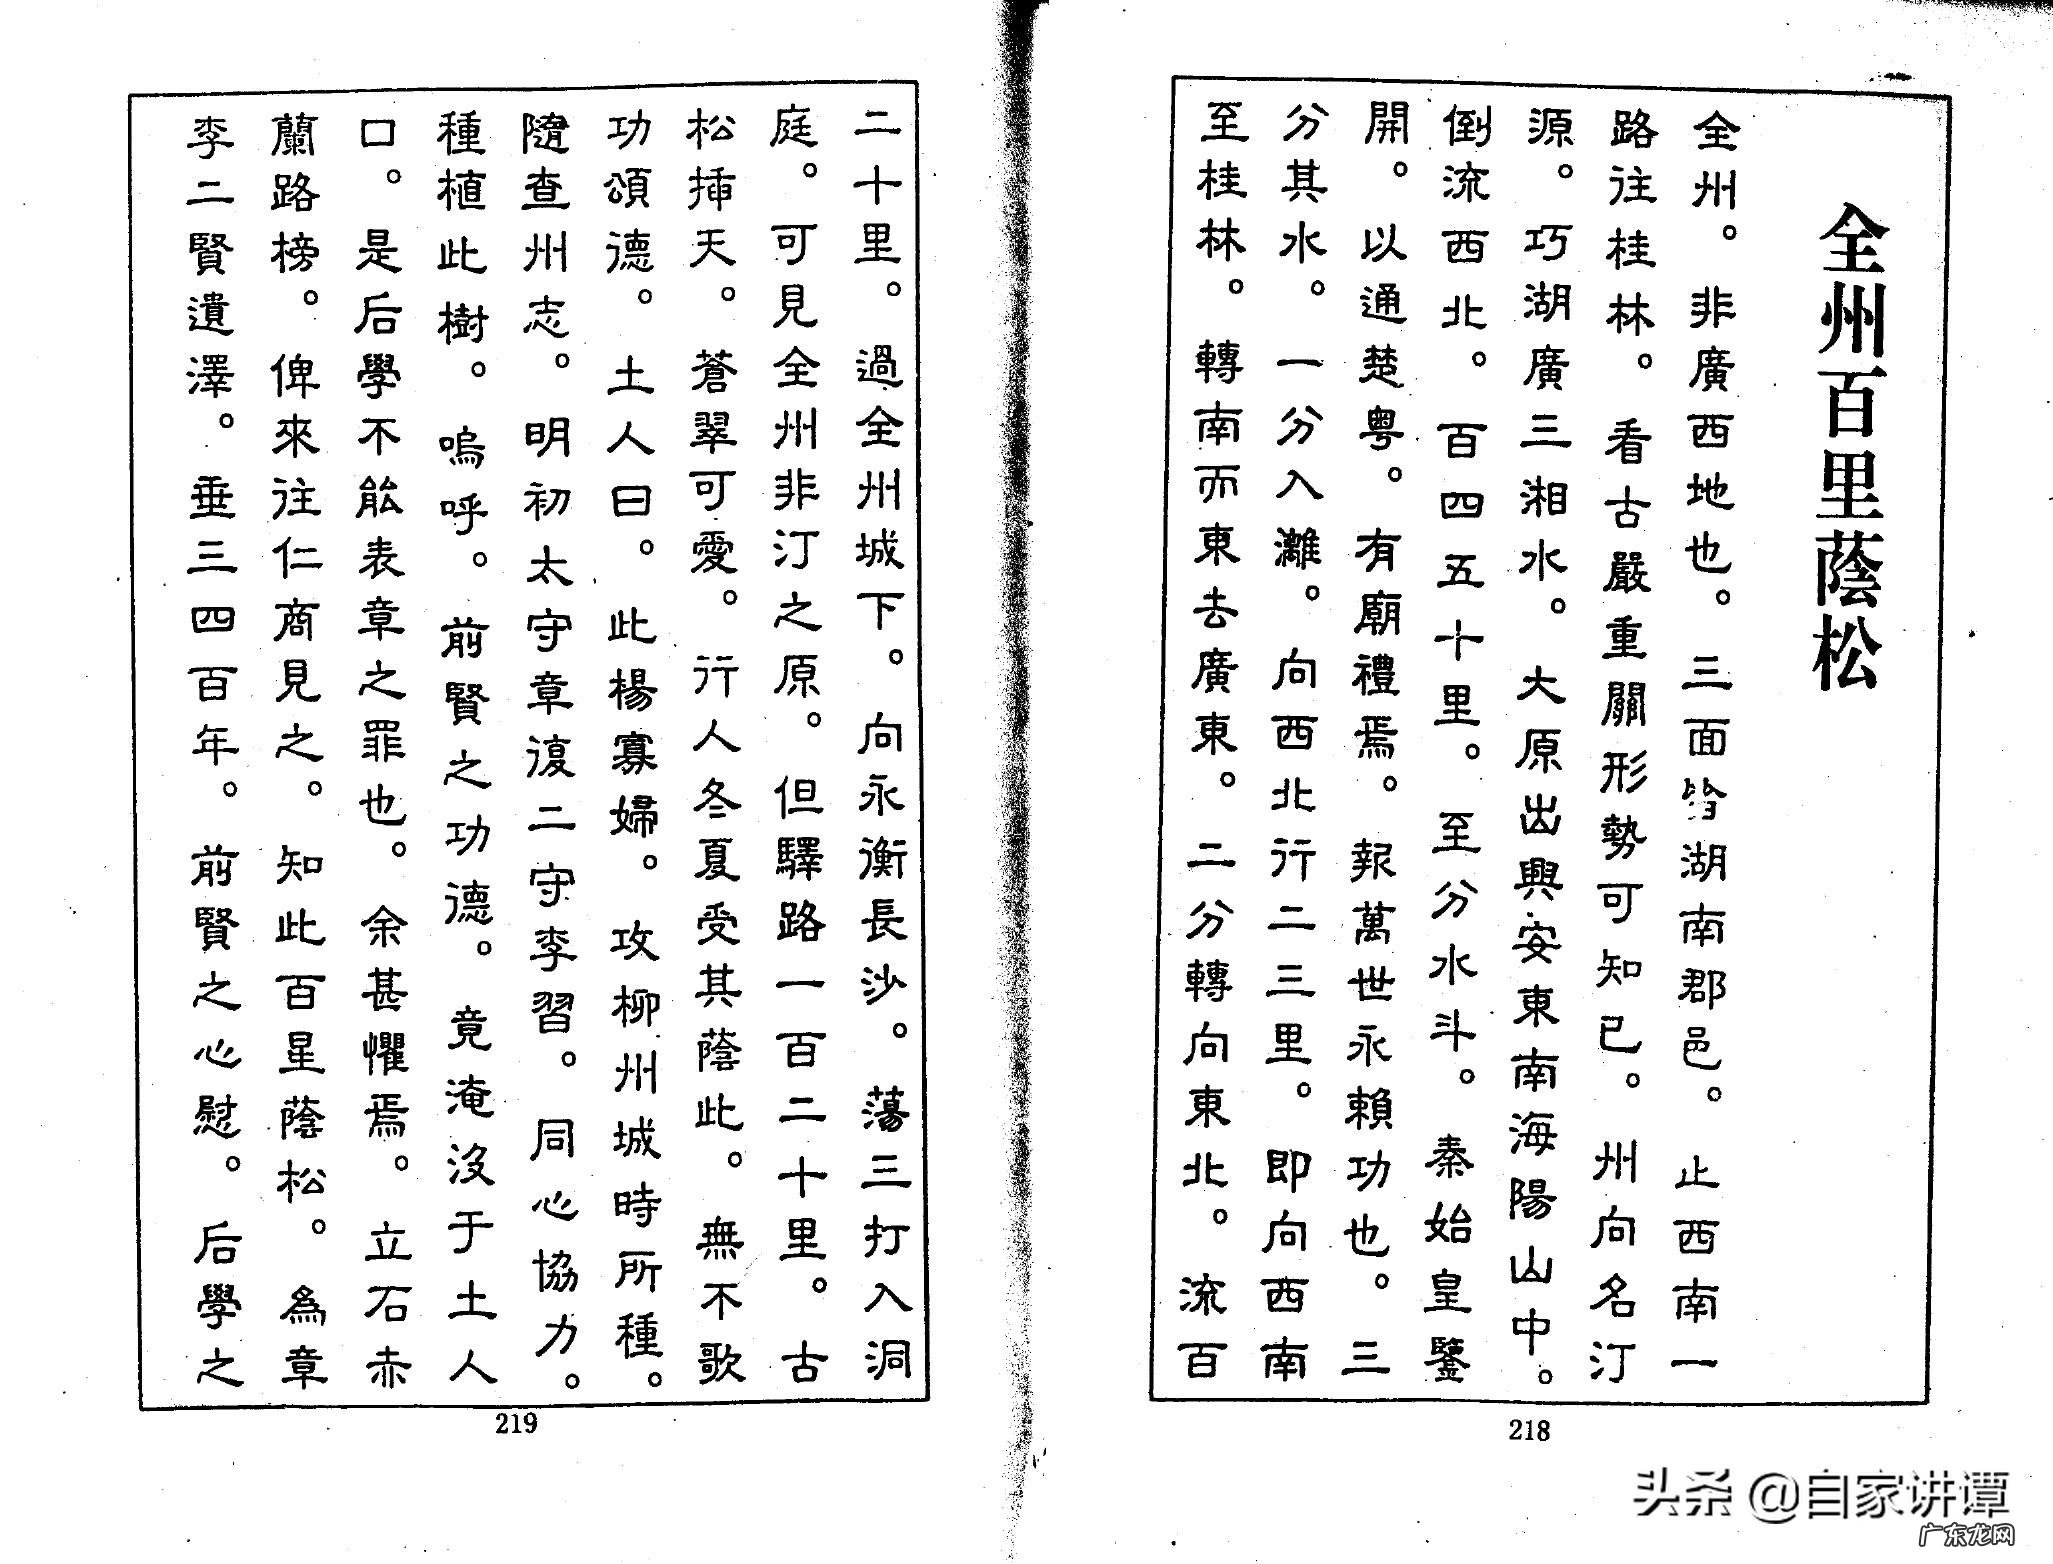 全州百里蔭松
全州。非廣西地也。三面皆湖南郡邑。止西南一
路往桂林。看古嚴重關形勢可知已。州向名汀
源。巧湖廣三湘水。大原出興安東南海陽山中。
倒流西北。百四五十里。至分水斗。秦始皇鑒
開。以通楚粵。有廟禮焉。報萬世永賴功也。三
分其水。一分入灕。向西北行二三里。即向西南
至桂林。轉南而東去廣東。二分轉向東北。流百
218
二十里。過全州城下。向永衡長沙。蕩三打入洞
庭。可見全州非汀之原。但驛路一百二十里。古
松揷天。蒼翠可愛。行人冬夏受其蔭此。無不歌
功頌德。土人曰。此楊寡婦。攻柳州城時所種。
隨查州志。明初太守章復二守李習。同心協力。
種植此樹。嗚呼。前賢之功德。竟淹沒于土人
口。是后學不能表章之罪也。余甚懼焉。立石赤
蘭路榜。俾來往仁商見之。知此百星蔭松。為章
李二賢遺澤。垂三四百年。前賢之心慰。后學之
219
头条 @自家讲谭
广东龙网